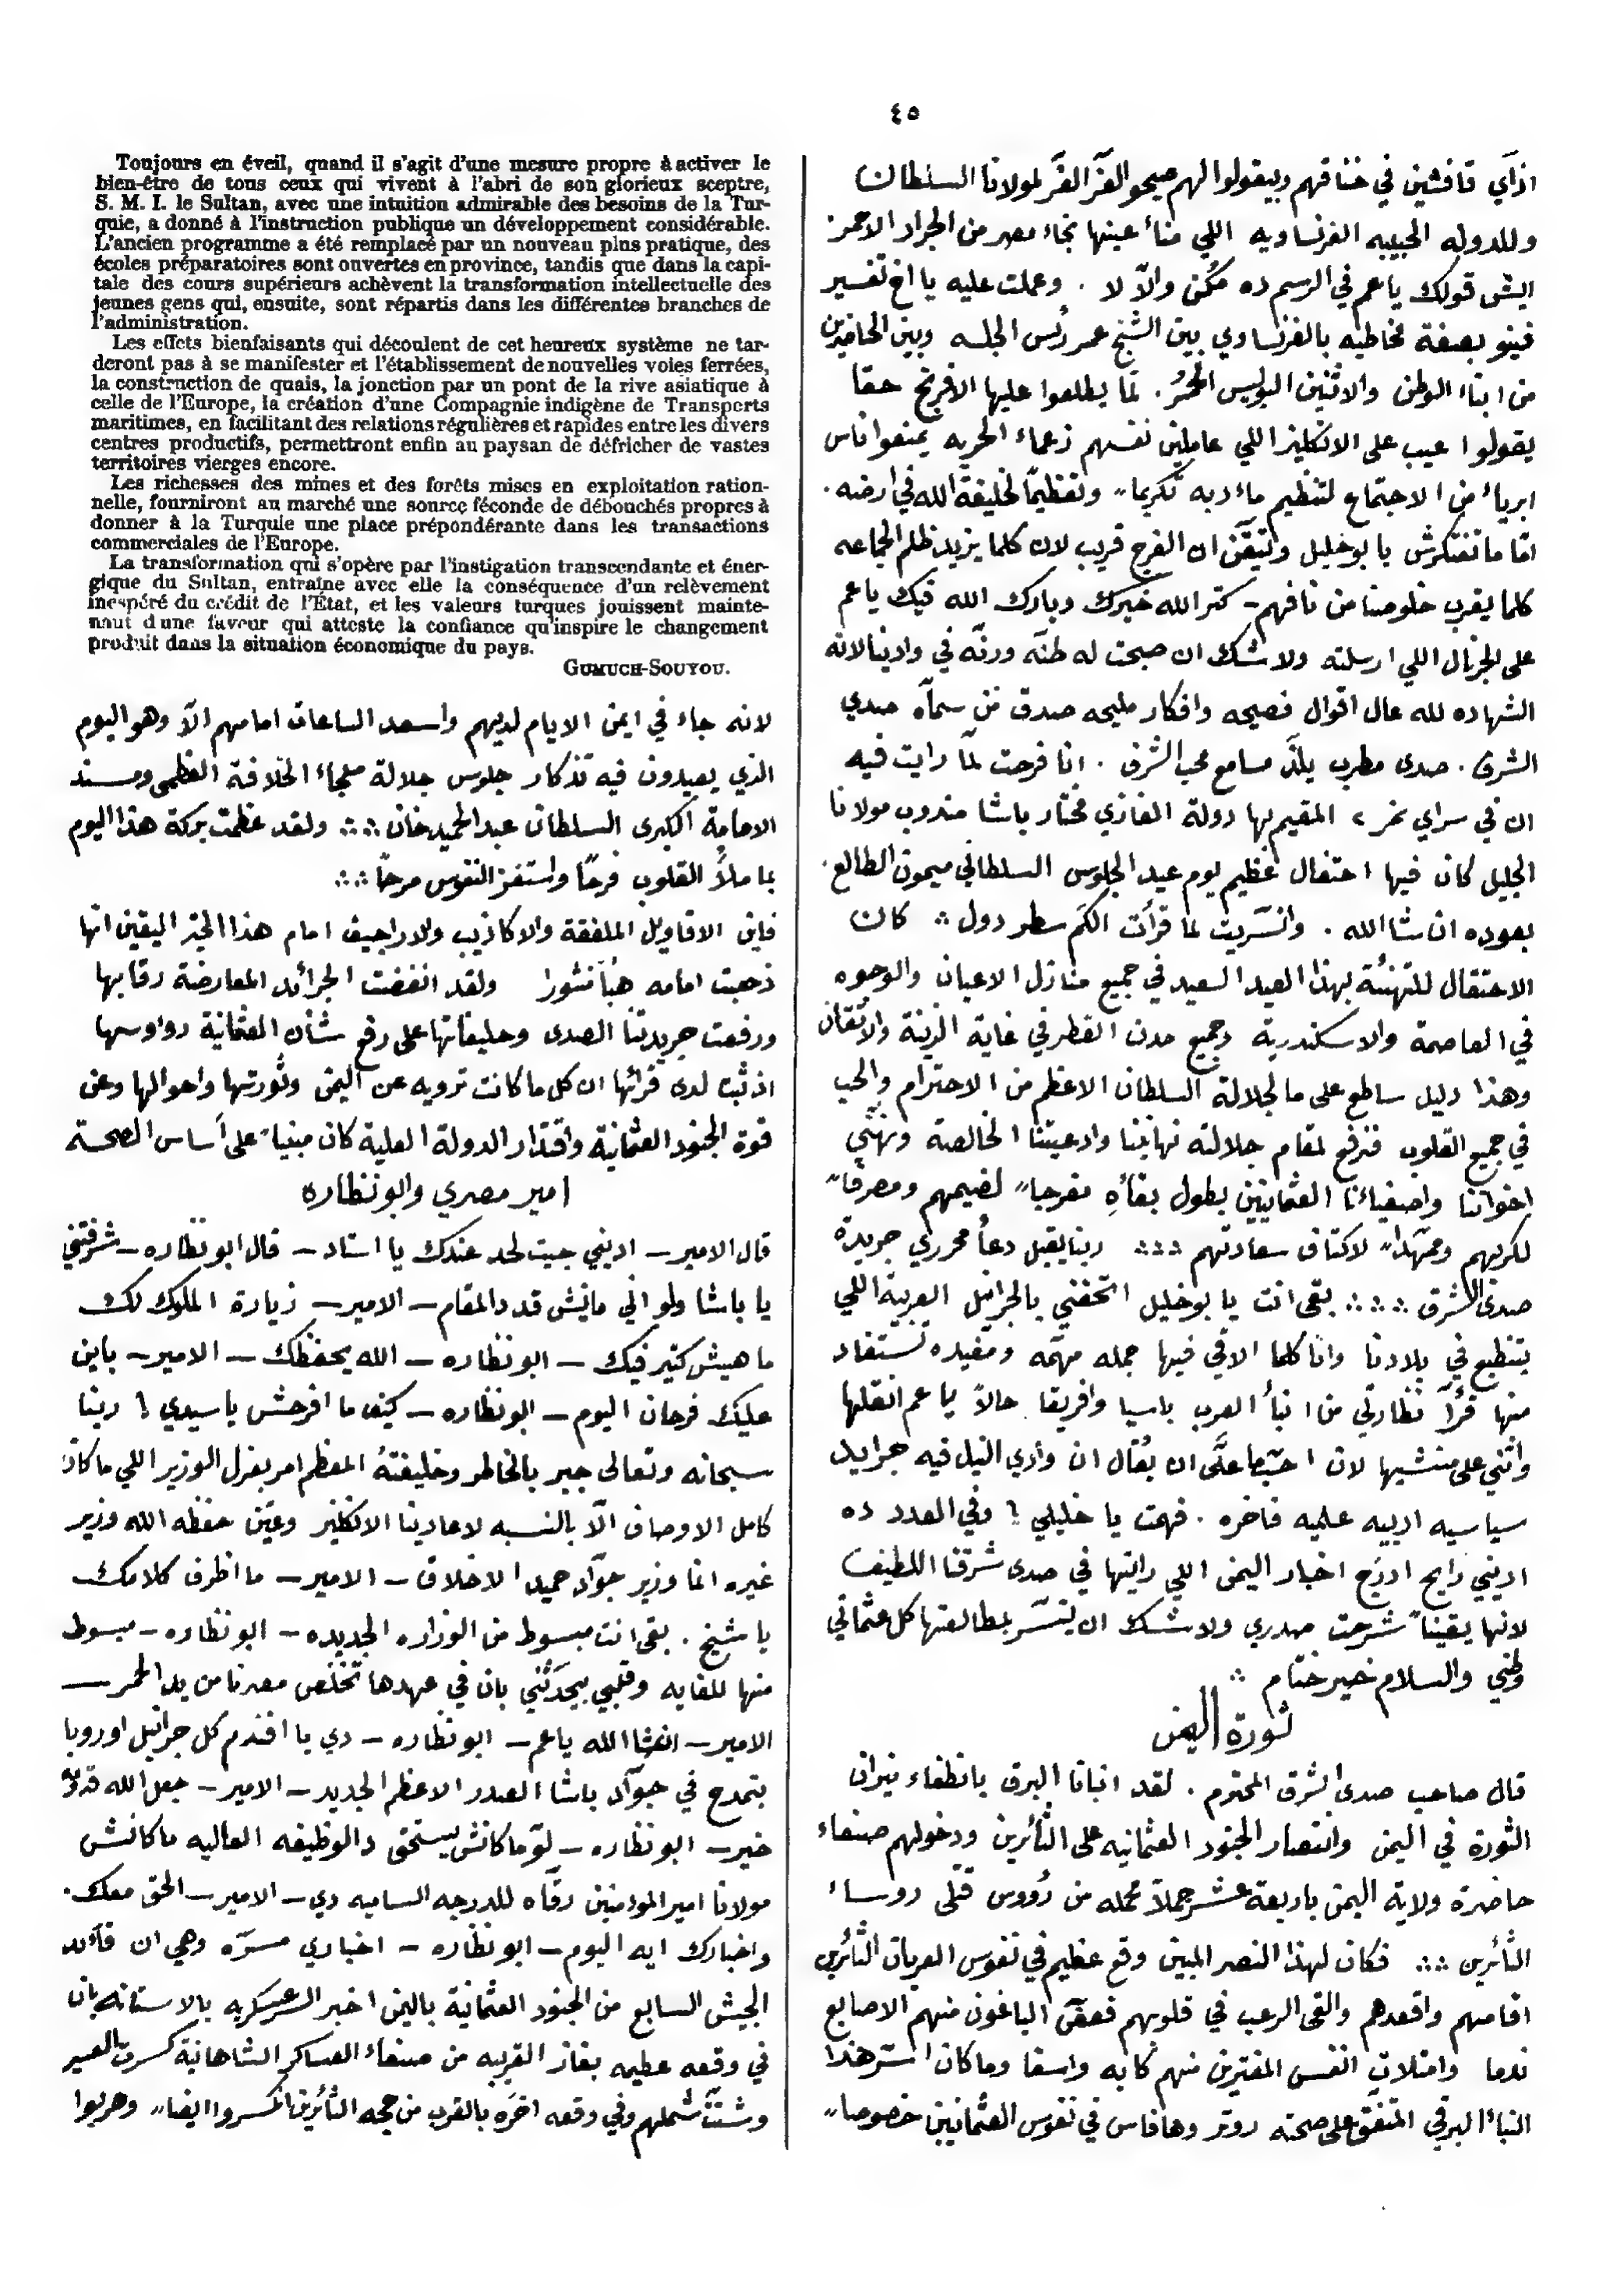 ٤٥
ازآي قافشين في خناقهم وبيقولوا لهم صيحوا الفَر الفَر لمولانا السلطان
وللدوله الحبيبه الفرنساويه اللي مناء عينها نجاء مصر من الجراد الاحمر
ايش قولك ياعم في الرسم ده مُكَن والّا لا . وعملت عليه يا اخ تفسير
فينو بصفة مخاطبه بالفرنساوي بين الشيخ عمر رئس الجلسه وبين الحاضرين
من ابناء الوطن والاثنين البوليس الحُمر . لمّا يطلعوا عليها الافرنج حقا
يقولوا عيب على الانكليز اللي عاملين نفسهم زعماء الحريه يمنعوا ناس
ابرياء من الاجتماع لتنظيم ماءدبه تكريما وتعظيمًا لخليفة الله في ارضه .
امّا ما تفتكرش يا بوخليل وتيقّن ان الفرج قريب لان كلما يزيد ظلم الجماعه
كلما يقرب خلوصنا من نافهم - كتر الله خيرك وبارك الله فيك ياعم
على الجرنال اللي ارسلته ولا شك ان صبحت له طنّه ورنّه في وادينا لانه
الشهاده لله عال اقوال فصيحه وافكار مليحه صدق من سمّاه صدى
الشرق . صدى مطرب يلذّ مسامع محب الشرق . انا فرحت لمّا رايت فيه
ان في سراي نمر ٢ المقيم بها دولة الغازي مختار باشا مندوب مولانا
الجليل كان فيها احتفال عظيم يوم عيد الجلوس السلطاني ميمون الطالع
بعوده ان شا الله . وانسّريت لما قرأت الكَم سطر دول ؞ كان
الاحتفال للتهنئة بهذا العيد السعيد في جميع منازل الاعيان والوجوه
في العاصمة والاسكندرية وجميع مدن القطر في غاية الزينة والاتقان
وهذا دليل ساطع على ما لجلالة السلطان الاعظم من الاحترام والحب
في جميع القلوب فنرفع لمقام جلالته تهانينا وادعيتنا الخالصة ونهنّي
اخواننا واصفياءنا العثمانيين بطول بقاءه مفرجاً لضيمهم ومصرفاً
لكربهم وممهداً لاكتناف سعادتهم ؞ ربنا يقبل دعأ محرري جريدة
صدى الشرق ؞ بقى انت يا بوخليل اتحفني بالجرانيل العربية اللي
بتنطبع في بلادنا وانا كلما الاقي فيها جمله مهمّه ومفيده تستفاد
منها قرّأ نظارتي من ابنأ العرب باسيا وافريقا حالاً ياعم انقلها
واثني على منشيها لان احبّ ما علَّى ان يُقال ان وادي النيل فيه جرايد
سياسيه ادبيه علميه فاخره . فهمت يا خليلي ؟ وفي العدد ده
اديني رايح ادرَج اخبار اليمن اللي رايتها في صدى شرقنا اللطيف
لانها يقيناً شرحت صدري ولا شك ان يتسّر بمطالعتها كل عثماني
وطني والسلام خير ختام ؞
ثورة اليمن
قال صاحب صدى الشرق المحترم . لقد انبانا البرق بانطفاء نيران
الثورة في اليمن وانتصار الجنود العثمانيه على الثأئرين ودخولهم صنعاء
حاضرة ولاية اليمن باربعة عشر جملاً محمله من رؤوس قتلى روساء
الثأئرين ؞ فكان لهذا النصر المبين وقع عظيم في نفوس العربان الثأئرين
اقامهم واقعدهم والقى الرعب في قلوبهم فعضّ الباغون منهم الاصابع
ندما وامتلات انفس المفترين منهم كابه واسفا وما كان اسّر هذا
النباء البرقي المتفق على صحته روتر وهافاس في نفوس العثمانيين خصوصاً
Toujours en éveil, quand il s'agit d'une mesure propre à activer le
bien-être de tous ceux qui vivent à l'abri de son glorieux sceptre,
S. M. I. le Sultan, avec une intuition admirable des besoins de la Tur-
quie, a donné à l'instruction publique un développement considérable.
L'ancien programme a été remplacé par un nouveau plus pratique, des
écoles préparatoires sont ouvertes en province, tandis que dans la capi-
tale des cours supérieurs achèvent la transformation intellectuelle des
jeunes gens qui, ensuite, sont répartis dans les différentes branches de
l'administration.
Les effets bienfaisants qui découlent de cet heureux système ne tar-
deront pas à se manifester et l'établissement de nouvelles voies ferrées,
la construction de quais, la jonction par un pont de la rive asiatique à
celle de l'Europe, la création d'une Compagnie indigène de Transports
maritimes, en facilitant des relations régulières et rapides entre les divers
centres productifs, permettront enfin au paysan de défricher de vastes
territoires vierges encore.
Les richesses des mines et des forêts mises en exploitation ration-
nelle, fourniront au marché une source féconde de débouchés propres à
donner à la Turquie une place prépondérante dans les transactions
commerciales de l'Europe.
La transformation qui s'opère par l'instigation transcendante et éner-
gique du Sultan, entraîne avec elle la conséquence d'un relèvement
inespéré du crédit de l'État, et les valeurs turques jouissent mainte-
nant d'une faveur qui atteste la confiance qu'inspire le changement
produit dans la situation économique du pays.
GUMUCH-SOUYOU.
لانه جاء في ايمن الايام لديهم واسعد الساعات امامهم الّا وهو اليوم
الذي يعيدون فيه تذكار جلوس جلالة ملجاء الخلافة العظمى ومسند
الامامة الكبرى السلطان عبد الحميد خان ؞ ولقد عظمت بركة هذا اليوم
بما ملأ القلوب فرحًا واستفز النفوس مرحًا ؞
فاين الاقاويل الملفقة والاكاذيب والاراجيف امام هذا الخبر اليقين انها
ذهبت امامه هبأ منثورا ولقد انخفضت الجرائد المعارضة رقابها
ورفعت جريدتنا الصدى وحليفاتها على رفع شأن العثمانية رواوسها
اذ ثبت لدى قرائها ان كل ما كانت ترويه عن اليمن وثورتها واحوالها وعن
قوة الجنود العثمانية واقتدار الدولة العلية كان مبنياً على أساس الصحة
امير مصري وابو نظاره
قال الامير - اديني جيت لحد عندك يا استاد - قال ابو نظاره - شرفتني
يا باشا ولو اني مانيش قد دالمقام - الامير - زيارة الملوك لك
ماهيش كتير فيك - ابو نظاره - الله يحفظك - الامير - باين
عليك فرحان اليوم - ابو نظاره - كيف ما افرحش ياسيدي ؟ ربنا
سبحانه وتعالى جبر بالخاطر وخليفتهُ المعظم امر بعزل الوزير اللي ما كان
كامل الاوصاف الّا بالنسبه لاعادينا الانكليز وعيّن حفظه الله وزير
غيره انما وزير جوّاد حميد الاخلاق - الامير - ما اظرف كلامك
يا شيخ . بقى انت مبسوط من الوزاره الجديده - ابو نظاره - مبسوط
منها للغايه وقلبي بيحدّثني بان في عهدها تخلص مصرنا من يد الحمر -
الامير - انشا الله ياعم - ابو نظاره - دي يا افندم كل جرانيل اوروبا
بتمدح في جوّاد باشا الصدر الاعظم الجديد - الامير - جعل الله قدومه
خير - ابو نظاره - لوّ ما كانش يستحق دالوظيفه العاليه ما كانش
مولانا امير المومنين رقّاه للدرجه الساميه دي - الامير - الحق معك .
واخبارك ايه اليوم - ابو نظاره - اخباري مسرّه وهي ان قآئد
الجيش السابع من الجنود العثمانية باليمن اخبر السر عسكريه بالاستانه بان
في وقعه عظيمه بغاز القريبه من صنعاء العساكر الشاهانية كسرت العسير
وشتتّ شملهم وفي وقعه اخره بالقرب من حجه الثأئرين انكسروا ايضاً وهربوا